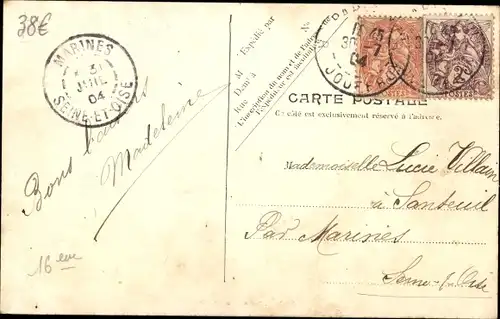 38€
MARINES
31
JUIL
04
SEINE-ET-OISE
Expédié par
M
Demt à
Rue
No
L'inscription du nom et de l'adresse de
l'expéditeur est facultative.
CARTE POSTALE
Ce côté est exclusivement réservé à l'adresse.
Bons
Madeleine
Mademoiselle Lucie Villain
à Santeuil
Par Marines
Seine-&-Oise
16 eme
04
POSTES